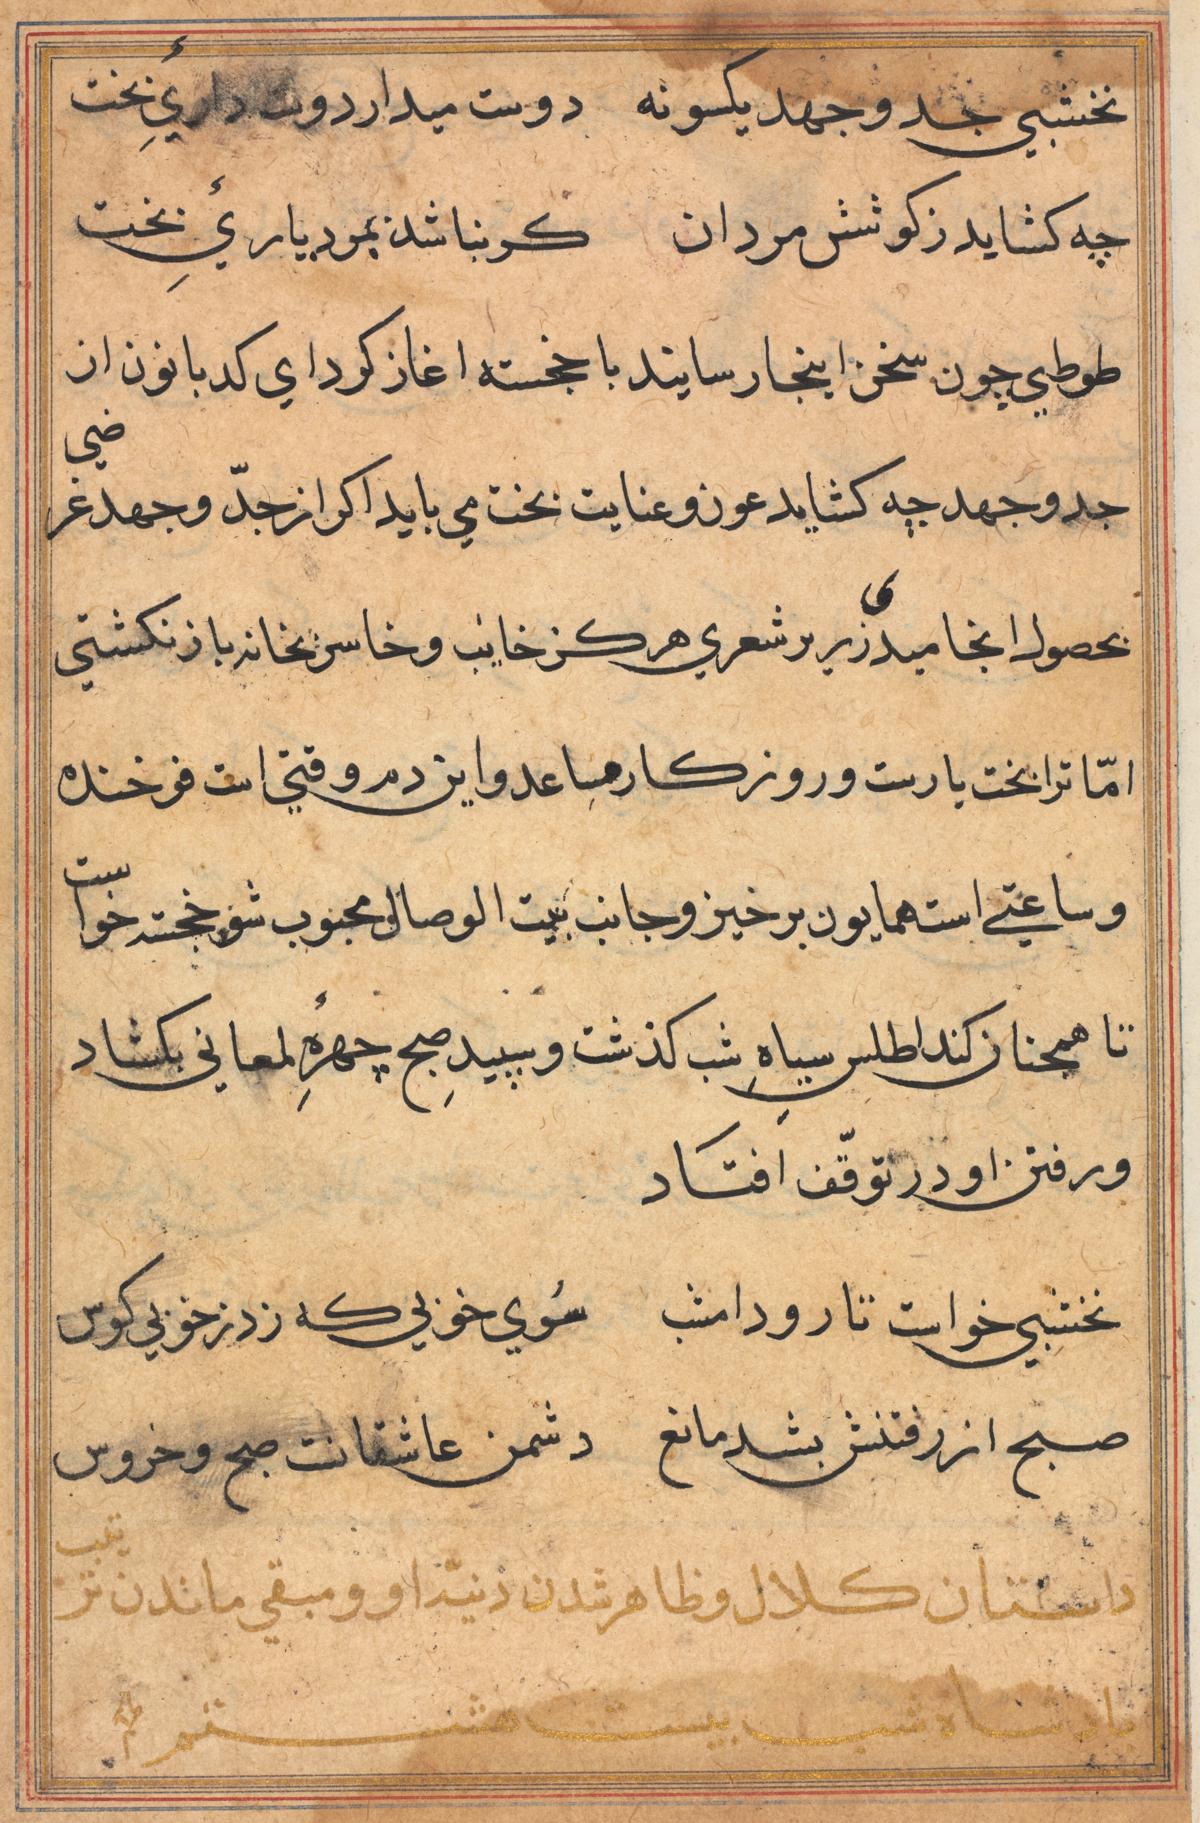 نخشبي جد وجهد يكسونه دوست ميدار دوست داريءِ بخت
چه كشايد زكوشش مردان كر نباشد بمرد ياريءِ بخت
طوطي چون سخن اينجا رسانيد با خجسته اغاز كرد اي كدبانو ازان
جد وجهد چه كشايد عون و عنايت بخت مي بايد اكر از جدّ وجهد غرضي
بحصول انجاميدي زرير شعري هركز خايب وخاسر بخانه باز نكشتي
امّا ترا بخت يارست وروزكار مساعد واين دم وقتي است فرخنده
وساعتي است همايون برخيز وجانب بيت الوصال محبوب شو خجسته خواست
تا همچنان كند اطلس سياهِ شب كذشت وسپيدِ صبح چهرهءِ لمعاني بكشاد
ورفتن او در توقّف افتاد
نخشبي خواست تا رود امشب سُوي خوبي كه زد زخوبي كوس
صبح از رفتنش بشد مانع دشمن عاشقانت صبح وخروس
داستان كلال وظاهر شدن دنيّت او ومبقي ماندن ترتيب
پادشاه شب بيست هشتم